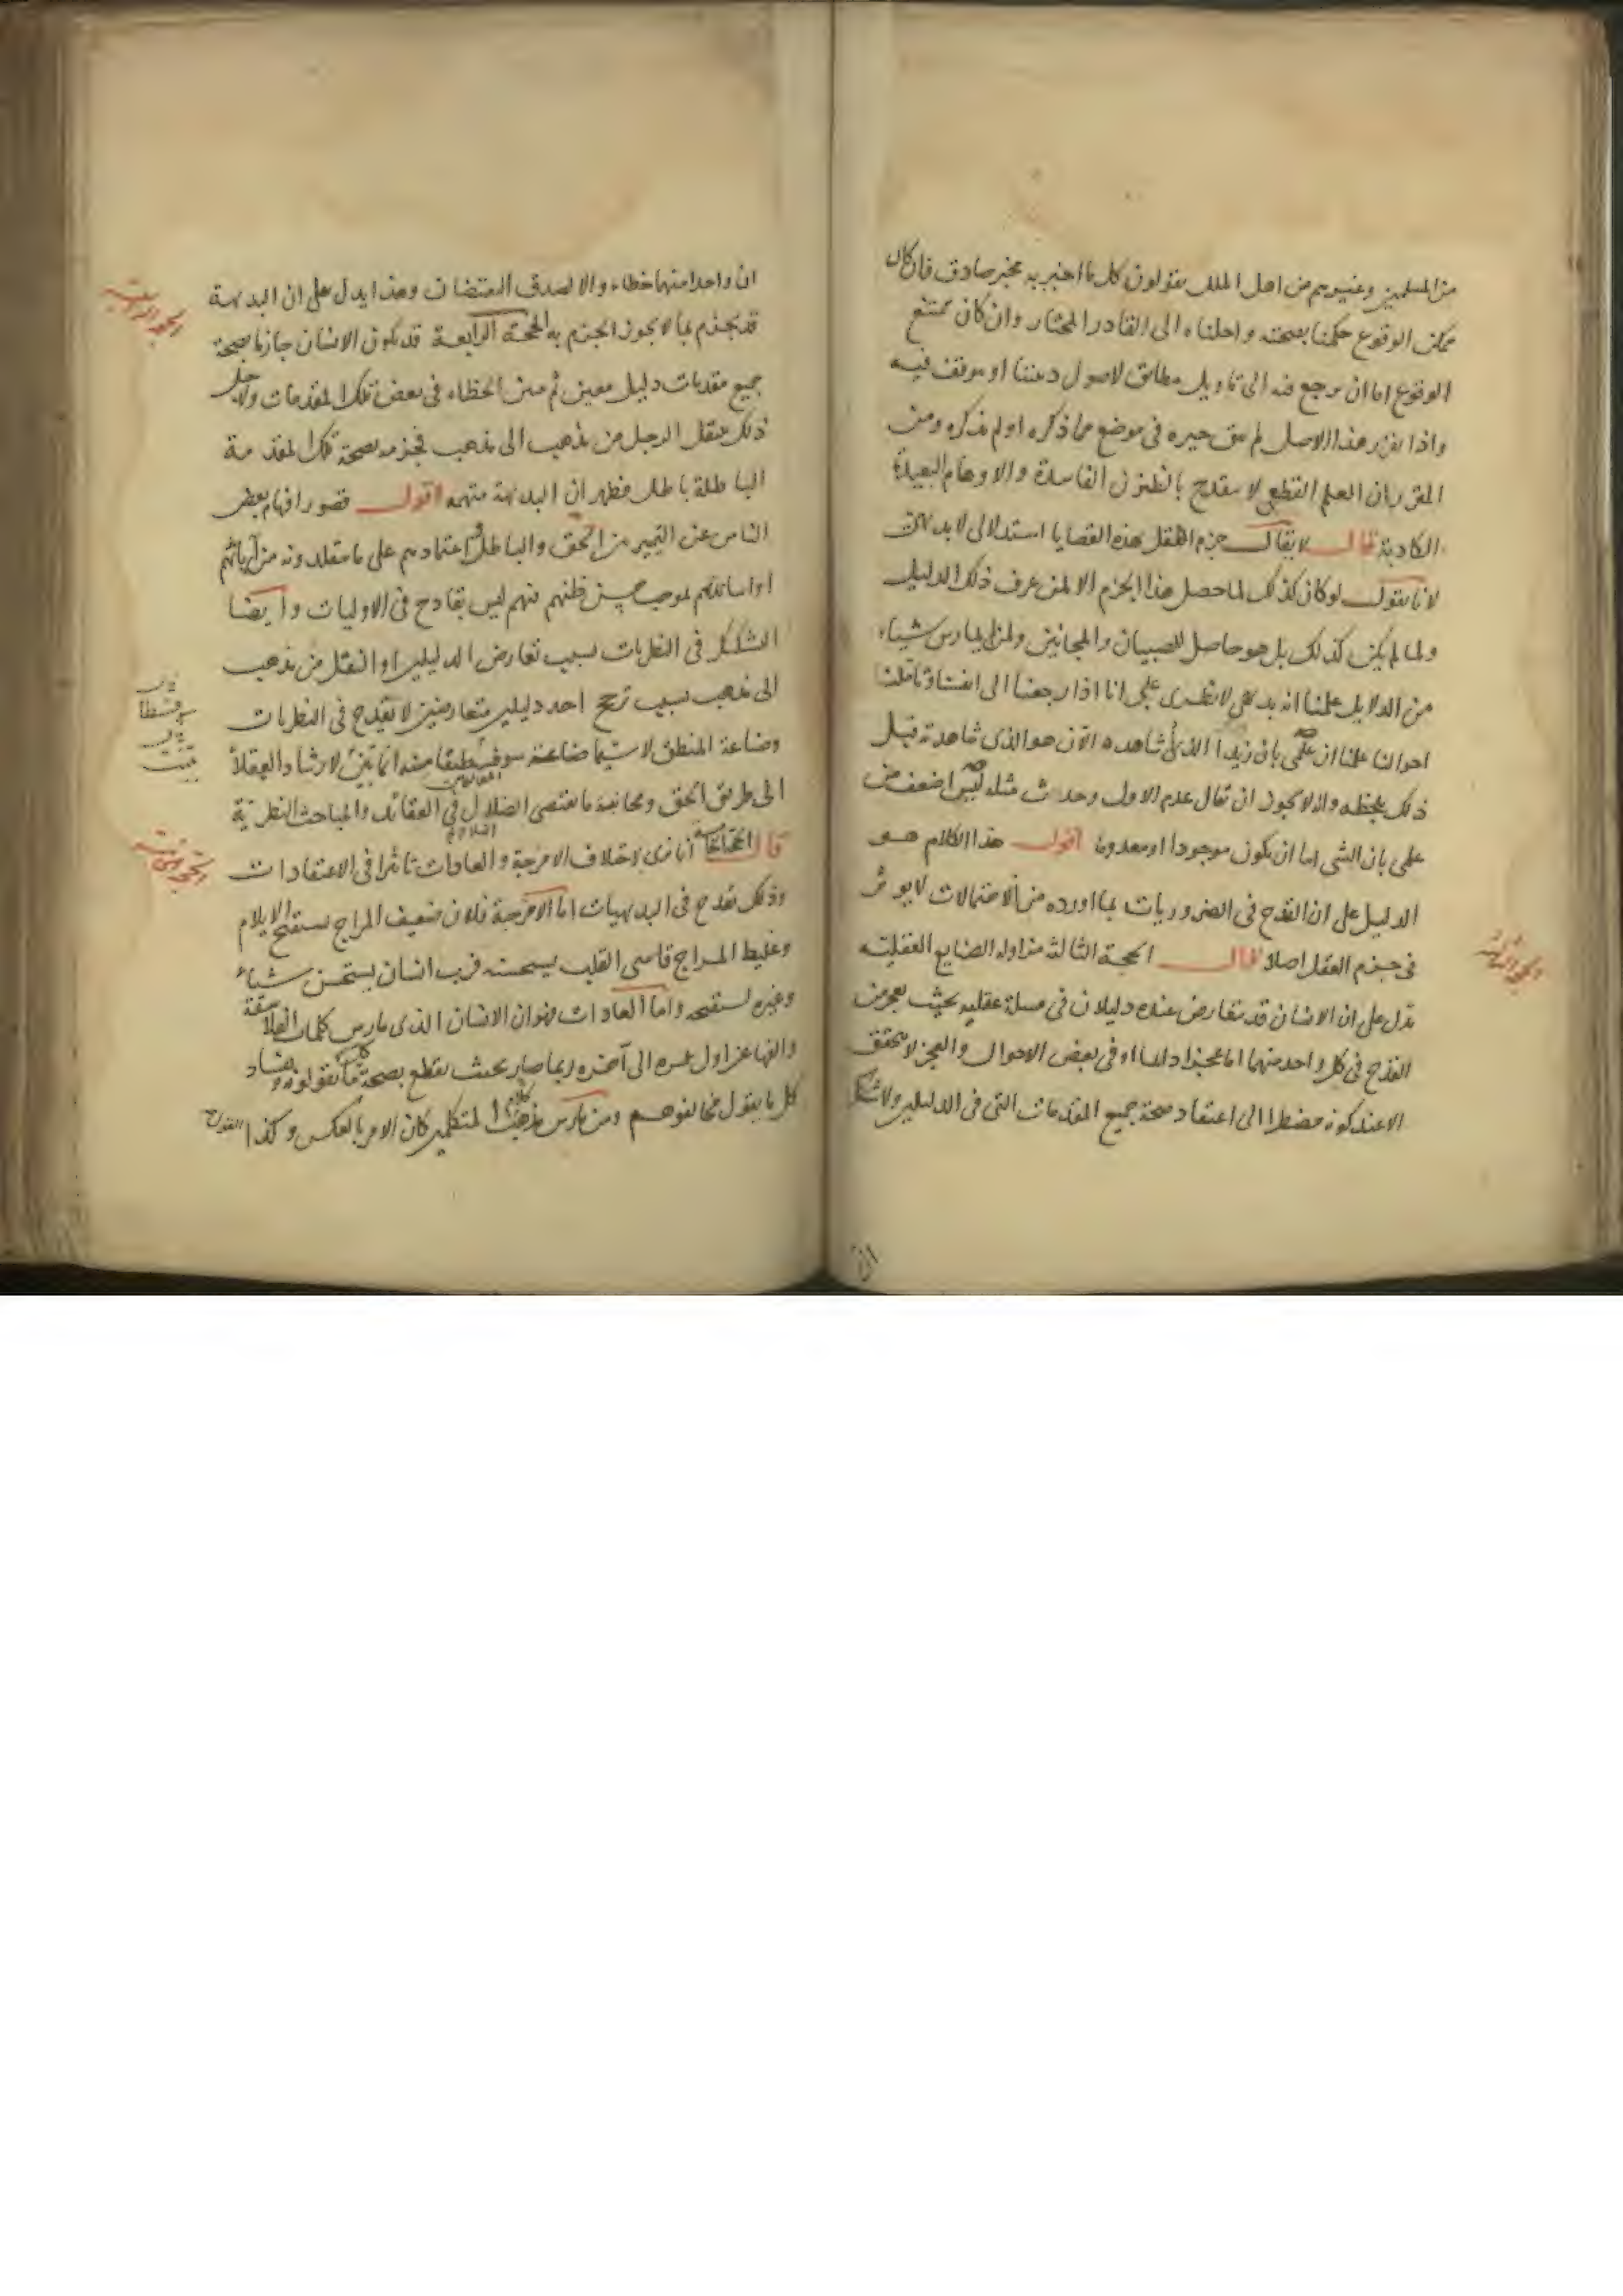 من المسلمين وغيرهم من اهل الملل يقولون كل ما اخبر به مخبر صادق فان كان
ممكن الوقوع حكمنا بصحته واحلناه الى القادر المختار وان كان ممتنع
الوقوع اما ان يرجع فيه الى تاويل مطابق لاصول ديننا او يوقف فيه
واذا تقرر هذا الاصل لم يبق حيره في موضع مما ذكره او لم يذكره ومن
المقرر ان العلم القطعي لا ينقدح بالظنون الفاسدة والاوهام البعيدة
الكاذبة قال لا يقال جزم العقل بهذه القضايا استدلالي لا بديهي
لانا نقول لو كان كذلك لما حصل هذا الجزم الا لمن عرف ذلك الدليل
ولما لم يكن كذلك بل هو حاصل للصبيان والمجانين ولمن لم يمارس شياء
من الدلايل علمنا انه بديهي لا نظري على انا اذا رجعنا الى انفسنا وتاملنا
احوالنا علمنا ان علمي بان زيدا الذي شاهده الآن هو الذي شاهدته قبل
ذلك بلحظه وانه لا يجوز ان يقال عدم الاول وحدث مثله ليس اضعف من
علمي بان الشي اما ان يكون موجودا او معدوما اقول هذا الكلام هو
الدليل على ان القدح في الضروريات بما اورده من الاحتمالات لا يوثر
في جزم العقل اصلا قال الحجة الثالثة مزاوله الصنايع العقليه
تدل على ان الانسان قد يتعارض عنده دليلان في مسلة عقليه بحيث يعجز من
القدح في كل واحد منهما اما عجزا دائما او في بعض الاحوال والعجز لا يتحقق
الا عند كونه مضطرا الى اعتقاد صحة جميع المقدمات التي في الدليلين ولا شك
ان
ان واحدا منهما خطاء والا لصدق النقيضان وهذا يدل على ان البديهة
قد تجزم بما لا يجوز الجزم به الحجة الرابعة قد يكون الانسان جازما بصحة
جميع مقدمات دليل معين ثم يتبين الخطاء في بعض تلك المقدمات ولاجل
ذلك ينتقل الرجل من مذهب الى مذهب فجزمه بصحة تلك المقدمة
الباطلة باطل فظهر ان البديهة متهمه اقول قصور افهام بعض
الناس عن التمييز بين الحق والباطل او اعتمادهم على ما يتقلدونه من آبائهم
او اساتذتهم لموجب حسن ظنهم فيهم ليس بقادح في الاوليات وايضا
التشكك في النظريات بسبب تعارض الدليلين او التنقل من مذهب
الى مذهب بسبب ترجح احد دليلين متعارضين لا يقدح في النظريات
وصناعة المنطق لا سيما صناعة سوفسطيقا منه انما تبين لارشاد العقلاء
الى طريق الحق ومجانبة ما يقتضي الضلال في العقائد والمباحث النظرية
قال الحجة الخامسة انا نرى لاختلاف الامزجة والعادات تاثيرا في الاعتقادات
وذلك يقدح في البديهيات اما الامزجة فلان ضعيف المزاج يستقبح الايلام
وغليظ المزاج قاسى القلب يستحسنه فرب انسان يستحسن شياء
وغيره يستقبحه واما العادات فهو ان الانسان الذي مارس كلمات الفلاسفة
والفها من اول عمره الى آخره ربما صار بحيث يقطع بصحة كل ما يقولونه وبفساد
كل ما يقول مخالفوهم ومن مارس كلام المتكلمين كان الامر بالعكس وكذا القول
الحجة الثالثة
الحجة الرابعة
الحجة الخامسة